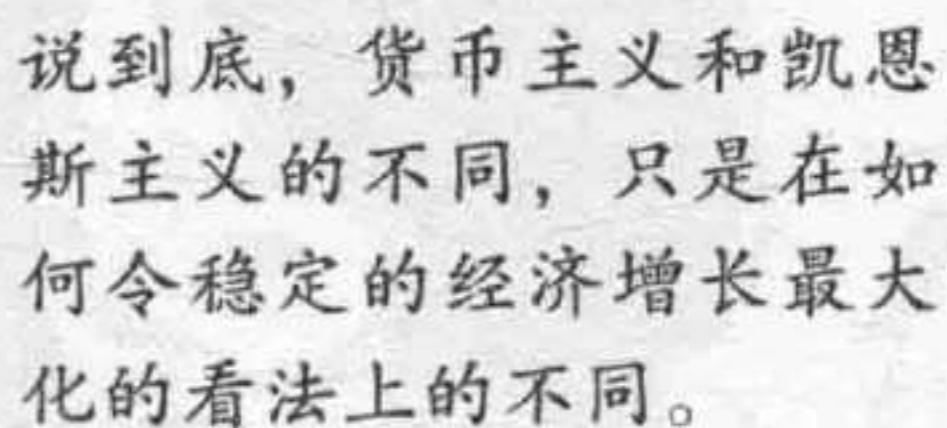 说到底，货币主义和凯恩
斯主义的不同，只是在如
何令稳定的经济增长最大
化的看法上的不同。